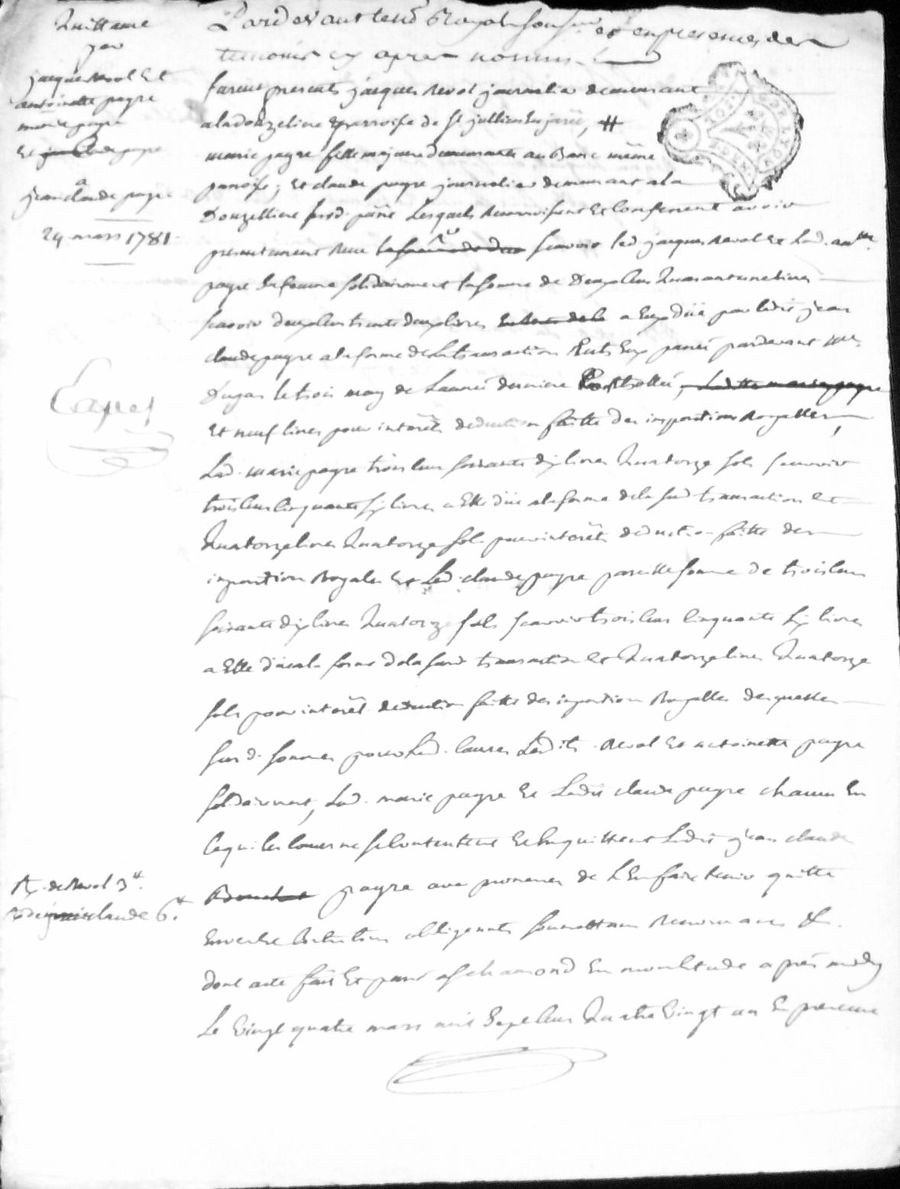 Quittance
par
jacque Revol Et
antoinette payre
marie payre
Et payre
a
jean claude payre
24 mars 1781.
Par devant Royal sousné et en presences des
temoins cy apres nommés
furent presents jacques Revol journalier demeurant
a la donzeliere parroisse de St jullien en jaret, #
marie payre fille majeure demeurante au Banc même
paroisse; Et claude payre journalier demeurant a la
Donzelliere susd. parsse Lesquels Reconnoissent Et Confessent avoir
presentement Receu scavoir led. jacques Revol Et Lad. antte
payre sa femme solidairement la somme de Deux cens Quarante une livres
scavoir deux cens trente deux livres a Eux düe par ledit jean
claude payre a la forme de la transaction Entr'Eux passée pardevant Me
Dugas le trois may de L'année derniere Controllée, Ladite marie payre
Et neuf livres pour interets deduction faitte des impositions Royalles,
Lad. marie payre trois cens soixante dix livres Quatorze sols scavoir
trois cens cinquante six livres a Elle düe a la forme de la susd transaction Et
Quatorze livres Quatorze sols pour interets deduction faitte des
imposition Royales Et Led. claude payre pareille somme de trois cens
soixante dix livres Quatorze sols scavoir trois cens cinquante six livres
a Elle düe a la forme de la susd transaction Et Quatorze livres Quatorze
sols pour interêt deduction faitte des imposition Royalles desquelles
susd. sommes Lesdits Revol Et antoinette payre
solidairement, Lad. marie payre Et Ledit claude payre chacun En
Ce qui les Concerne se Contentent Et En quittent Ledit jean claude
payre avec promesses de L'En faire tenir quitte
Envers Et Contre tous obligeants soumettans Renonceans &.
dont acte fait Et passé a St chamond En nôtre Etude apres midy
Le vingt quatre mars mil Sept cens Quatre vingt un En presence
R. de Revol 3#.
claude 6#.